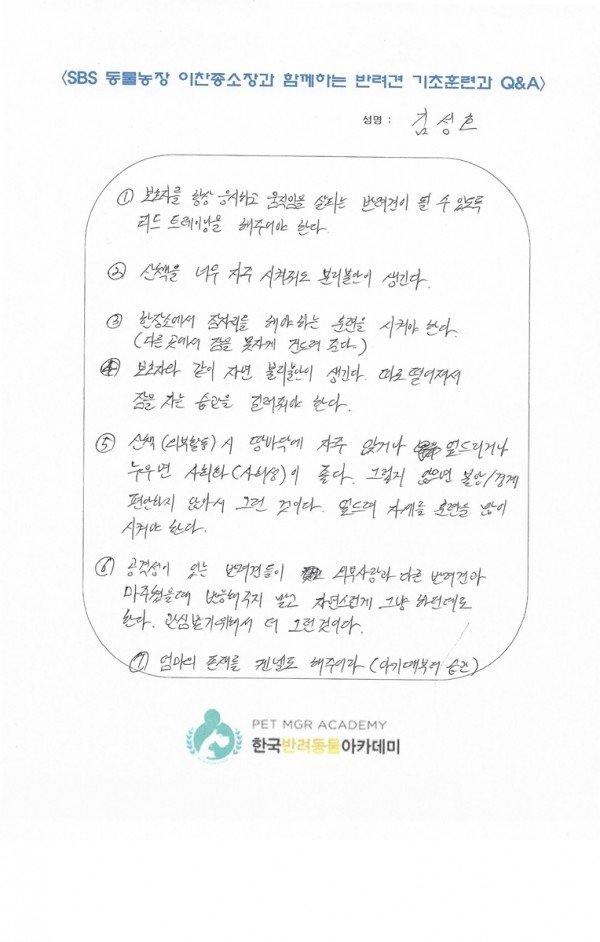 〈SBS 동물농장 이찬종소장과 함께하는 반려견 기초훈련과 Q&A〉
성명 : 김성호
① 보호자를 항상 응시하고 움직임을 살피는 반려견이 될 수 있도록
리드 트레이닝을 해주어야 한다.
② 산책을 너무 자주 시켜줘도 분리불안이 생긴다.
③ 한장소에서 잠자리를 해야하는 훈련을 시켜야 한다.
(다른곳에서 잠을 못자게 건드려 준다.)
④ 보호자와 같이 자면 불리불안이 생긴다. 따로 떨어져서
잠을 자는 습관을 길러줘야 한다.
⑤ 산책(외부활동)시 땅바닥에 자주 앉거나 엎드리거나
누우면 사회화(사회성)이 좋다. 그렇지 않으면 불안/경계
편안하지 않아서 그런 것이다. 엎드려 자세를 훈련을 많이
시켜야 한다.
⑥ 공격성이 있는 반려견들이 외부사람과 다른 반려견과
마주쳤을때 반응해주지 말고 자연스럽게 그냥 하던데로
한다. 관심받기위해서 더 그런것이다.
⑦ 엄마의 존재를 켄넬로 해주어라 (아기때부터 습관)
PET MGR ACADEMY
한국반려동물아카데미